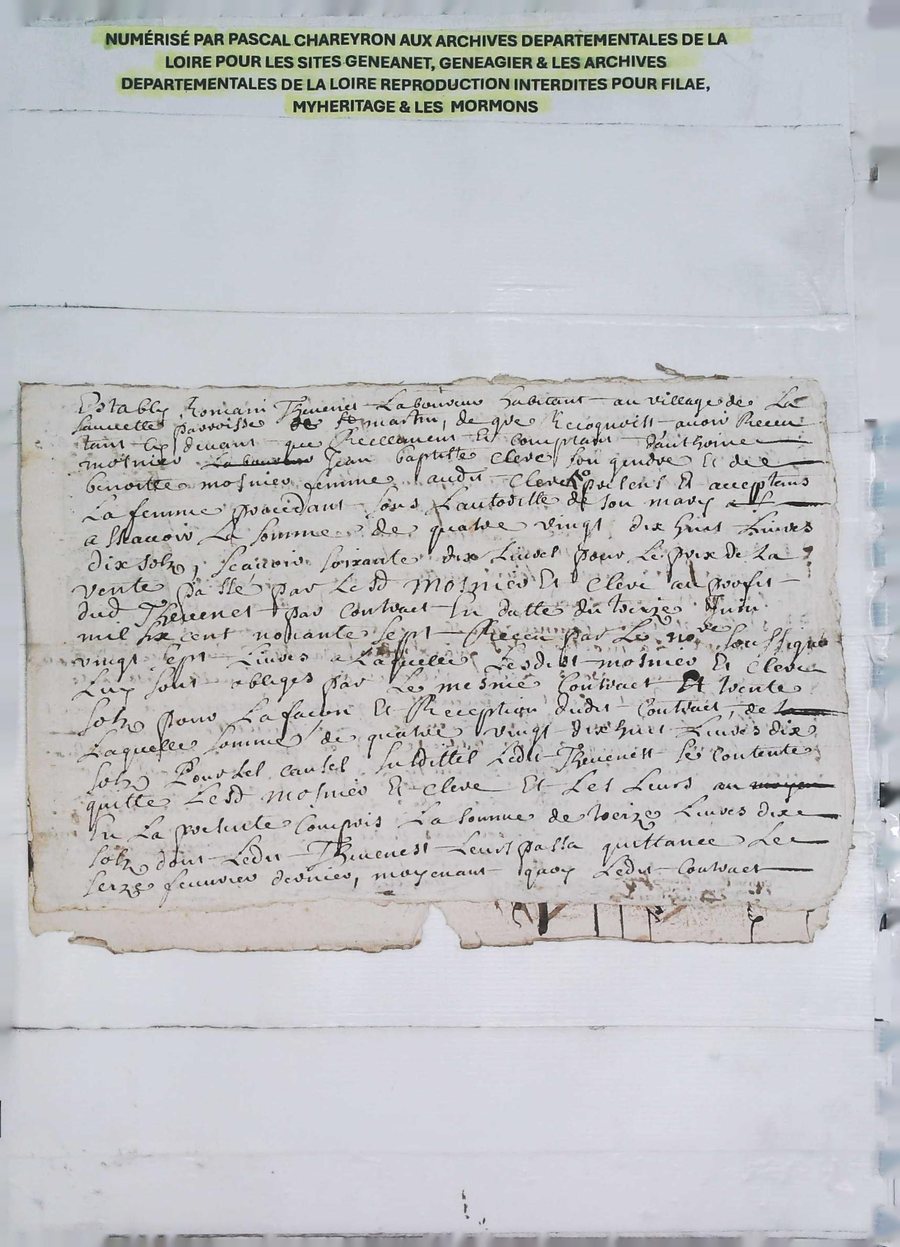 NUMÉRISÉ PAR PASCAL CHAREYRON AUX ARCHIVES DEPARTEMENTALES DE LA
LOIRE POUR LES SITES GENEANET, GENEAGIER & LES ARCHIVES
DEPARTEMENTALES DE LA LOIRE REPRODUCTION INTERDITES POUR FILAE,
MYHERITAGE & LES MORMONS
Estably Romain Thevenet Laboureur habitant au village de La
parroisse de st martin, de gre Recognoist avoir Receu
tant cy devant que Reellement Et comptant danthoine
mosnier Jean baptiste Cleve son gendre Et de
benoitte mosnier femme audit Cleve presens Et acceptans
La femme procedant sous Lautoritte de son mary
a scavoir La somme de quatre vingt dix huit Livres
dix solz, scavoir soixante dix Livres pour Le prix de La
vente passé par Lesd mosnier Et Cleve au profit
dud Thevenet par Contract En datte du treize Juin
mil six cent nonante sept Receu par Le no.re soussigné
vingt sept Livres a Laquelle Lesdits mosnier Et Cleve
Luy sont obligés par Le mesme Contract Et trente
solz pour La facon Et Reception dudit Contract, de
Laquelle somme de quatre vingt dix huit Livres dix
solz Pour les causes susdittes Ledit Thevenest se contente
quitte Lesd mosnier Et Cleve Et Les Leurs
En La presente Compris La somme de treize Livres dix
solz dont Ledit Thevenest Leurs passa quittance Le
seize fevrier dernier, moyenant quoy Ledit Contract